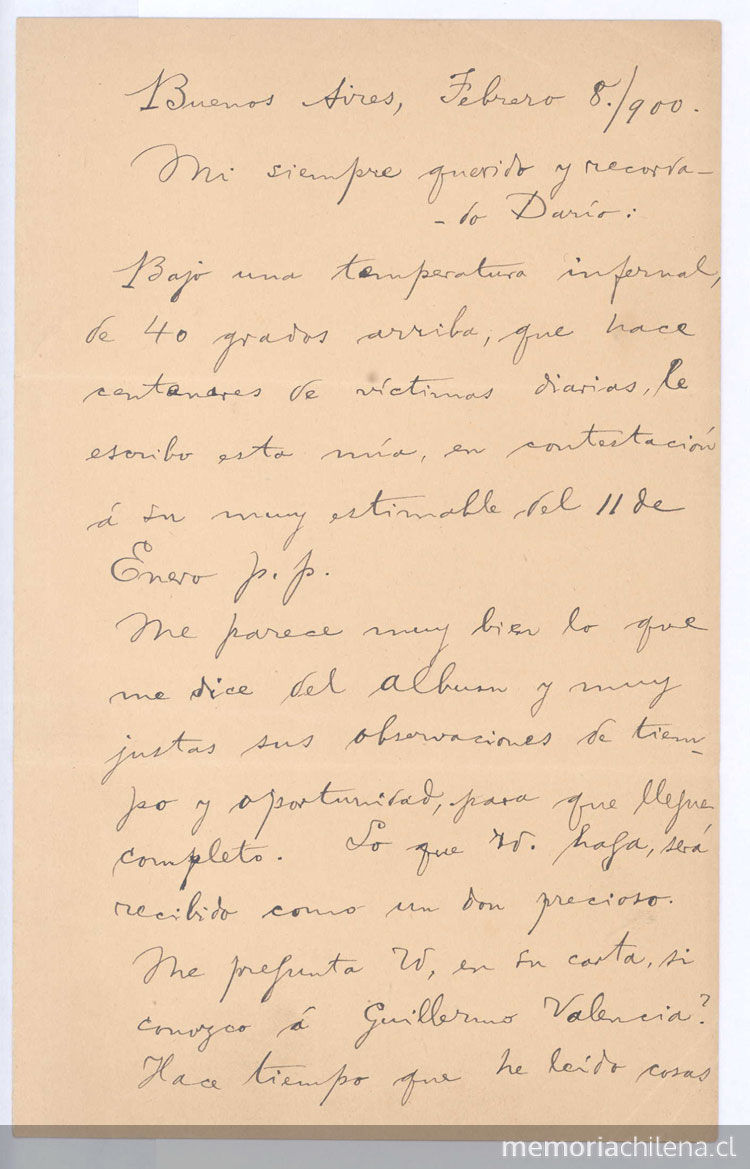 Buenos Aires, Febrero 8./900.
Mi siempre querido y recorda-
-do Darío:
Bajo una temperatura infernal,
de 40 grados arriba, que hace
centenares de víctimas diarias, le
escribo esta mía, en contestación
á su muy estimable del 11 de
Enero p. p.
Me parece muy bien lo que
me dice del album y muy
justas sus observaciones de tiem-
po y oportunidad, para que llegue
completo. Lo que Vd. haga, será
recibido como un don precioso.
Me pregunta Vd, en su carta, si
conozco á Guillermo Valencia?
Hace tiempo que he leído cosas
memoriachilena.cl